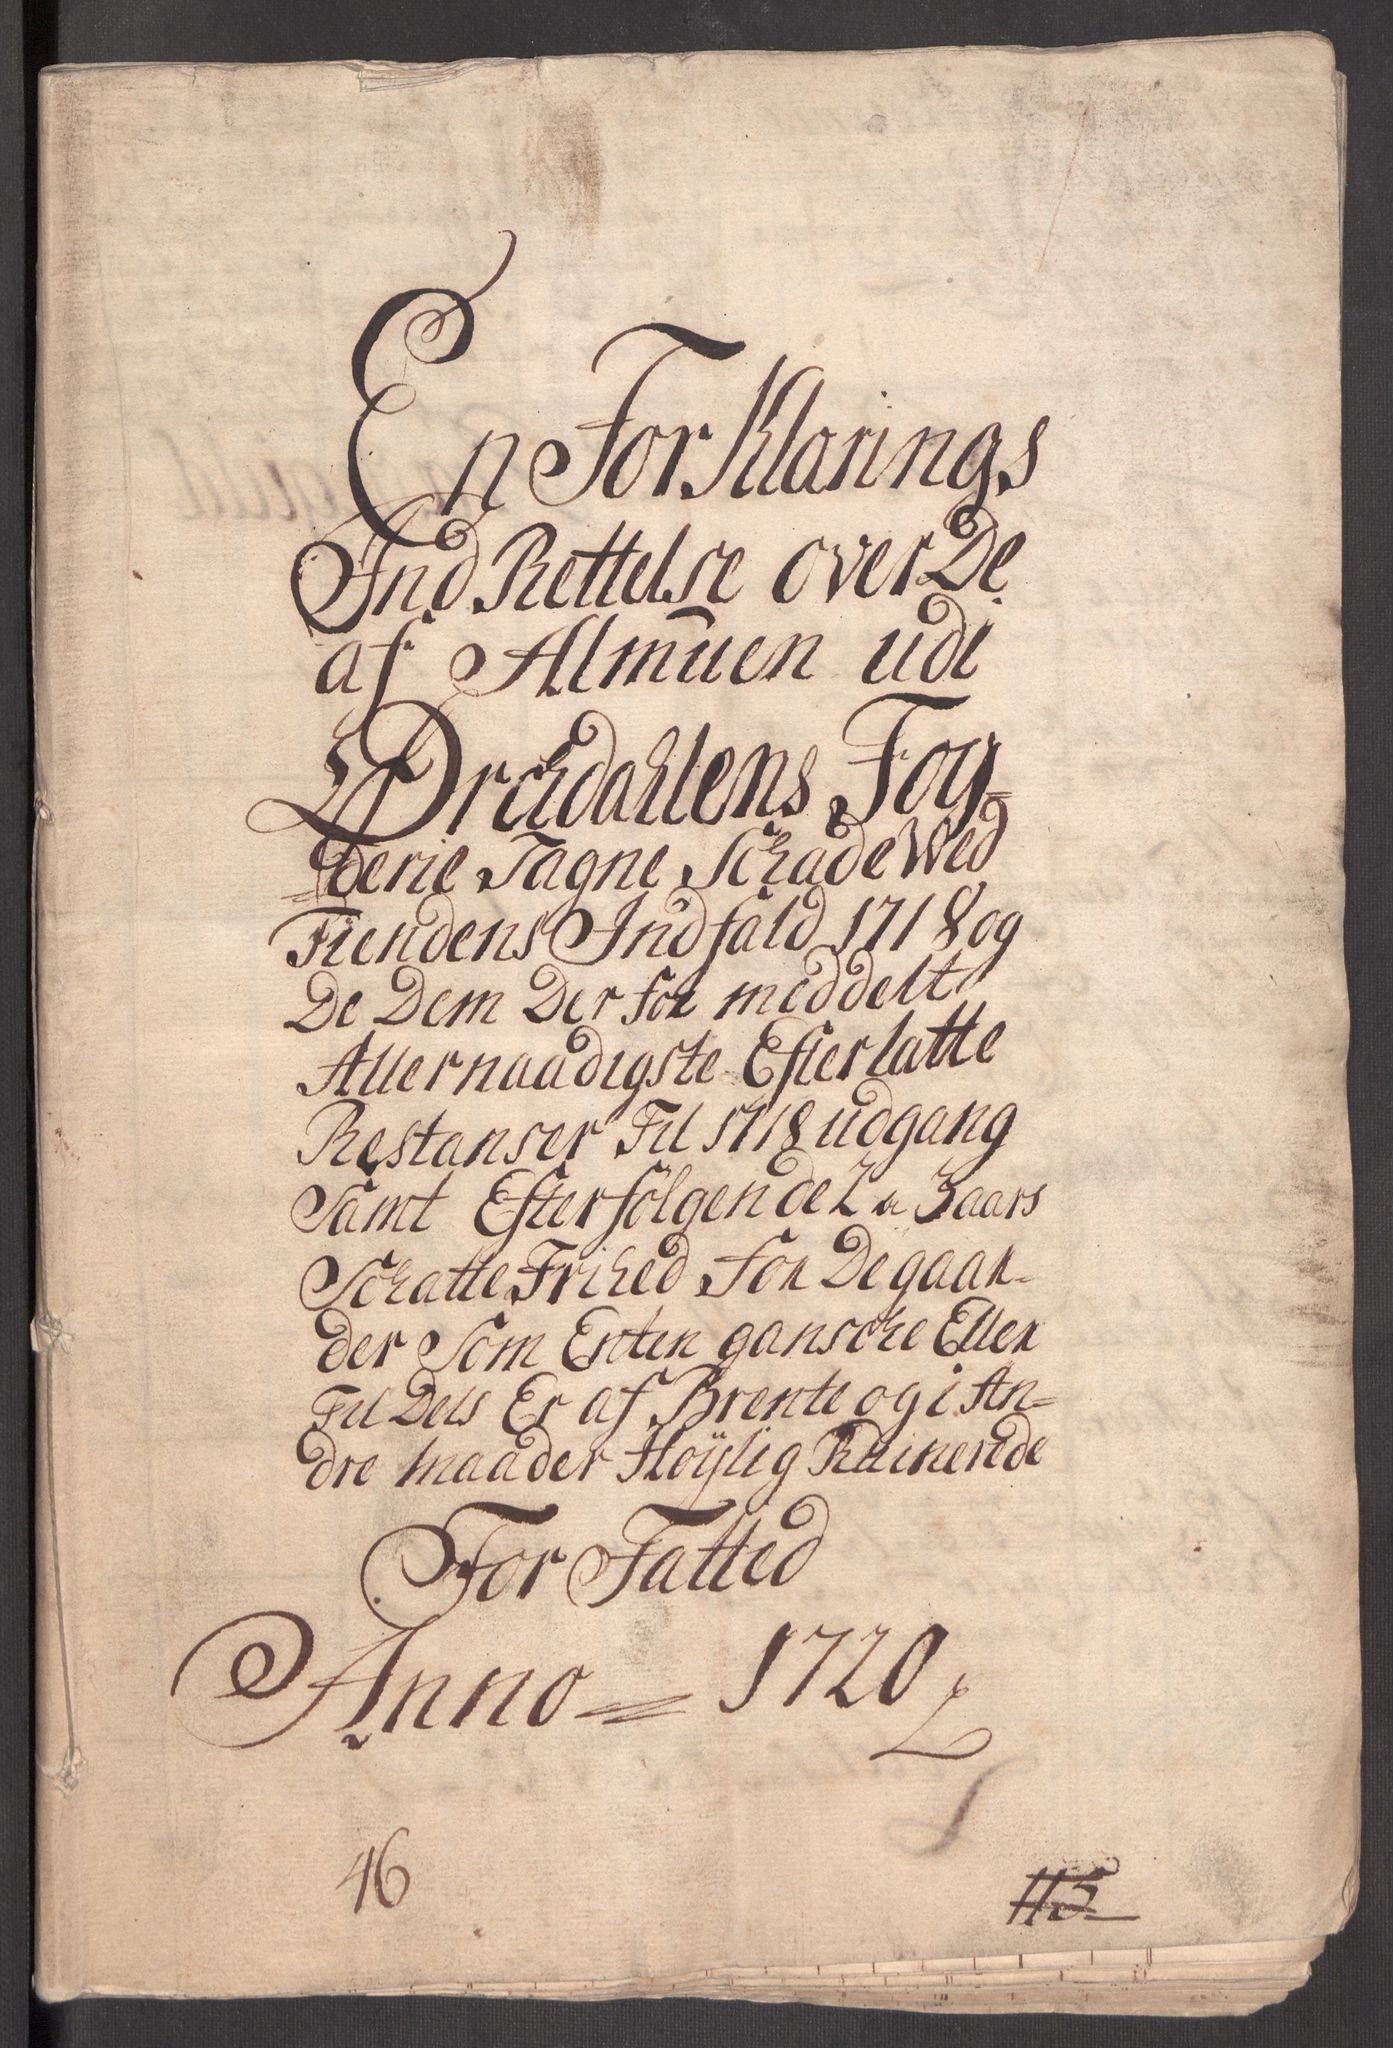 En ForKlarings
IndRettelse over De
af Almuen udi
Orckdahlens Fog-
derie Tagne Schade Wed
Fiendens Indfald 1718 og
De Dem Der for meddelt
Allernaadigste Efterlatte
Restanser Til 1718 udgang
Samt Efterfølgende 2 a 3 aars
Schatte Frihed For De gaar-
der Som Enten gansche Eller
Til Dels Er af Brente og i An-
dre maader Høÿlig Ruinerede
ForFatted
Anno = 1720
46
115